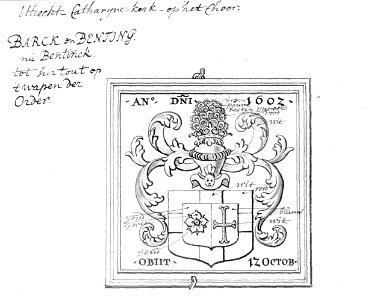 Utrecht - Catharyne - kerk - op het Choor.
BARCK en BENTING.
nu Bentinck.
tot hur tout op
t wapen der
Order.
·ANº· DÑI 1602·
wit
wit
blauw
wit
·OBIIT· 12 OCTOB·